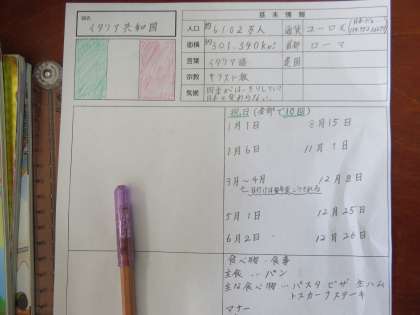 国名
イタリア共和国
基本情報
人口 約6102万人 通貨 ユーロ
面積 約301,340km² 首都 ローマ
言葉 イタリア語
宗教 キリスト教
気候 四季がはっきりしていて
日本と変わらない。
祝日(全部で10回)
1月1日 8月15日
1月6日 11月1日
3月~4月 12月8日
5月1日 12月25日
6月2日 12月26日
食べ物・食事
主食…パン
主な食べ物…パスタ ピザ 生ハム
トスカーナステーキ
マナー